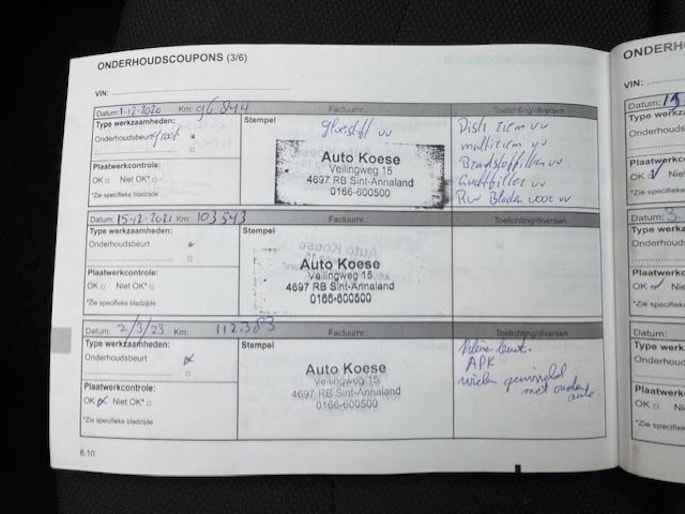 ONDERHOUDSCOUPONS (3/6)
VIN:
Datum: 1-12-2020 Km: 96 844 Factuurnr.: Toelichting/diversen
Type werkzaamheden:
Onderhoudsbeurt groot
Plaatwerkcontrole:
OK □ Niet OK* □
*Zie specifieke bladzijde
Stempel
gloeistift vv
Auto Koese
Veilingweg 15
4697 RB Sint-Annaland
0166-600500
Distr riem vv
multiriem vv
Brandstoffilter vv
Luchtfilter vv
Rw Bladen voor vv
Datum: 15-12-2021 Km: 103543 Factuurnr.: Toelichting/diversen
Type werkzaamheden:
Onderhoudsbeurt
Plaatwerkcontrole:
OK □ Niet OK* □
*Zie specifieke bladzijde
Stempel
Auto Koese
Veilingweg 15
4697 RB Sint-Annaland
0166-600500
Datum: 2/3/23 Km: 112.383 Factuurnr.: Toelichting/diversen
Type werkzaamheden:
Onderhoudsbeurt
Plaatwerkcontrole:
OK Niet OK* □
*Zie specifieke bladzijde
Stempel
Auto Koese
Veilingweg 15
4697 RB Sint-Annaland
0166-600500
kleine beurt.
APK
wielen gewisseld
met oude
auto
6.10
ONDERHO
VIN:
Datum:
Type werk
Onderhouds
Plaatwerkc
OK Nie
*Zie specifie
Datum: 3
Type werk
Onderhouds
Plaatwerk
OK Ni
*Zie specifie
Datum:
Type werk
Onderhoud
Plaatwerk
OK □ Ni
*Zie specifi